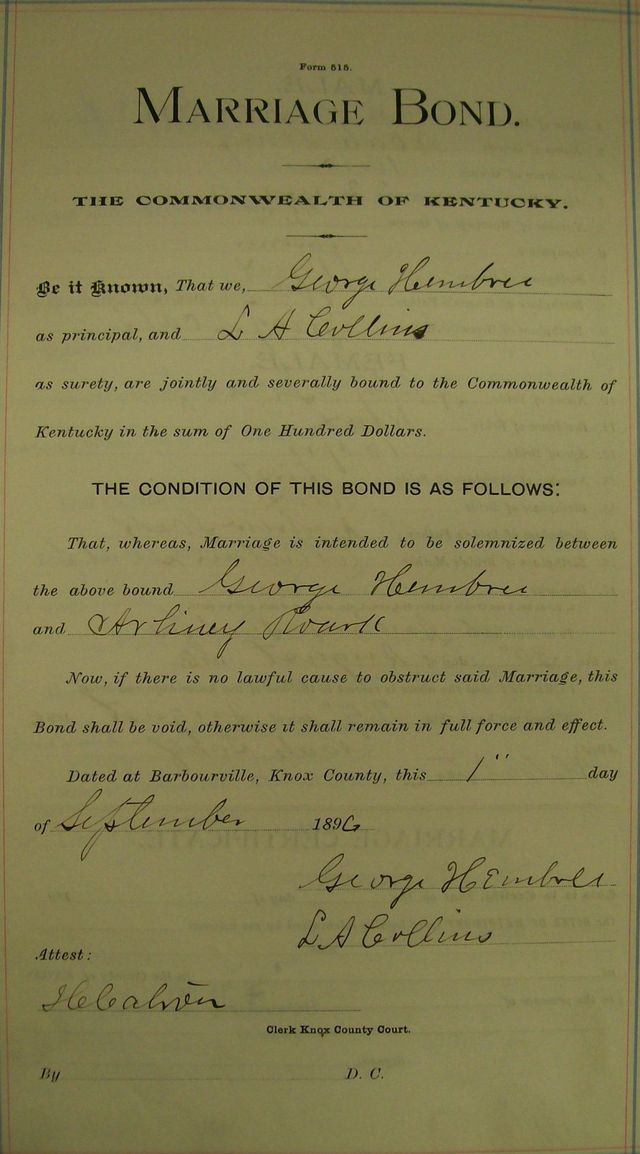 Form 515.
MARRIAGE BOND.
THE COMMONWEALTH OF KENTUCKY.
Be it Known, That we, George Hembree
as principal, and L A Collins
as surety, are jointly and severally bound to the Commonwealth of
Kentucky in the sum of One Hundred Dollars.
THE CONDITION OF THIS BOND IS AS FOLLOWS:
That, whereas, Marriage is intended to be solemnized between
the above bound George Hembree
and Rourk
Now, if there is no lawful cause to obstruct said Marriage, this
Bond shall be void, otherwise it shall remain in full force and effect.
Dated at Barbourville, Knox County, this 1" day
of September 1896
George Hembree
L A Collins
Attest:
Clerk Knox County Court.
By D. C.